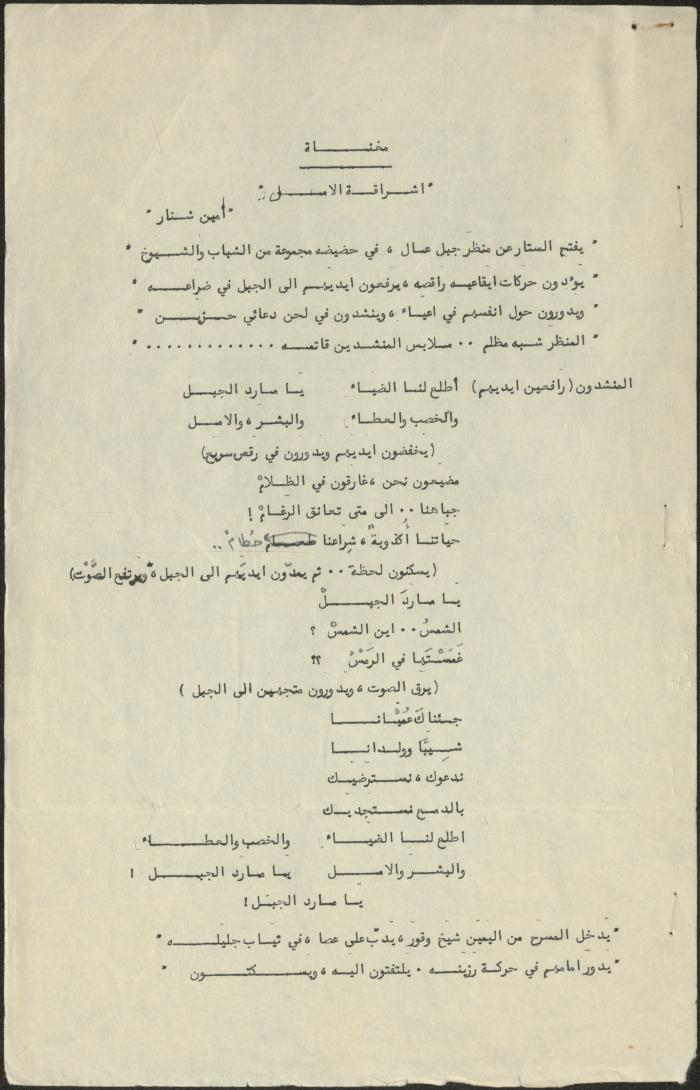 مغناة
" اشراقة الامل "
" أمين شنار "
" يفتح الستار عن منظر جبل عال ، في حضيضه مجموعة من الشباب والشيوخ "
" يؤدون حركات ايقاعيه راقصه ، يرفعون ايديهم الى الجبل في ضراعه "
" ويدورون حول انفسهم في اعياء ، وينشدون في لحن دعائي حزين "
" المنظر شبه مظلم .. ملابس المنشدين قاتمه ............. "
المنشدون ( رافعين ايديهم ) أطلع لنا الضياء يا مارد الجبل
والخصب والعطاء والبشر ، والامل
( يخفضون ايديهم ويدورون في رقص سريع )
مضيعون نحن ، غارقون في الظلامْ
جباهنا .. الى متى تعانق الرغامْ !
حياتنا أُكذوبةٌ ، شِراعنا حُطامْ ..
( يسكتون لحظة .. ثم يمدّون ايديَهم الى الجبل ، ويرتفع الصَّوْت )
يا ماردَ الجبلْ
الشمسُ .. اين الشمسْ ؟
غَمَسْتَها في الرَمْسْ ؟؟
( يرق الصوت ، ويدورون متجهين الى الجبل )
جئناكَ عُمْيانا
شيبًا وولدانا
ندعوك ، نسترضيك
بالدمع نستجديك
اطلع لنا الضياء والخصب والعطاء
والبشر والامل يا مارد الجبل !
يا مارد الجبل !
" يدخل المسرح من اليمين شيخ وقور ، يدبّ على عصا ، في ثياب جليله "
" يدور امامهم في حركة رزينه . يلتفتون اليه ، ويسكتون "